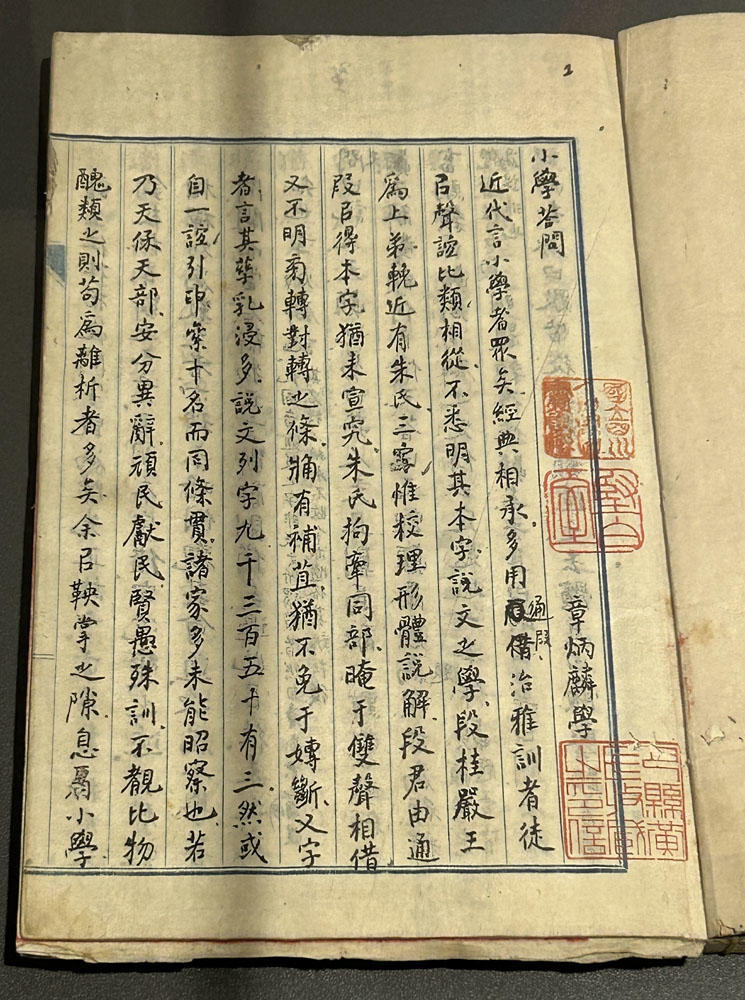 2
小學荅問 章炳麟學
近代言小學者眾矣經典相承多用通叚借治雅訓者徒
㠯聲誼比類相從不悉明其本字說文之學段桂嚴王
爲上弟輓近有朱氏三家惟校理形體說解段君由通
叚㠯得本字猶未宣究朱氏拘牽同部晻于雙聲相借
又不明旁轉對轉之條觕有補苴猶不免于嫥斷又字
者言其孳乳浸多說文列字九千三百五十有三然或
自一誼引申絫十名而同條貫諸家多未能昭察也若
乃天天部安分異辭頑民獻民賢愚殊訓不覩比物
醜類之則苟爲離析者多矣余㠯鞅掌之隙息肩小學